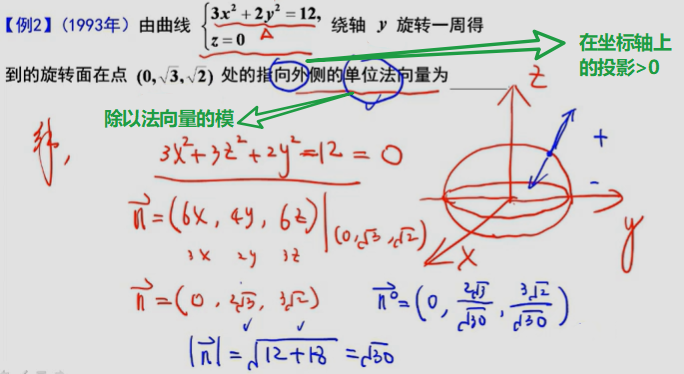 【例2】（1993年）由曲线 {3x²+2y²=12, z=0 绕轴 y 旋转一周得
A
在坐标轴上
的投影>0
到的旋转面在点 (0,√3,√2) 处的指向外侧的单位法向量为
除以法向量的模
解,
3x²+3z²+2y²=12=0
n⃗=(6x, 4y, 6z)|(0,√3,√2)
3x 2y 3z
n⃗=(0, 2√3, 3√2)
n⃗⁰=(0, 2√3/√30, 3√2/√30)
|n⃗|=√12+18=√30
z
+
-
y
x